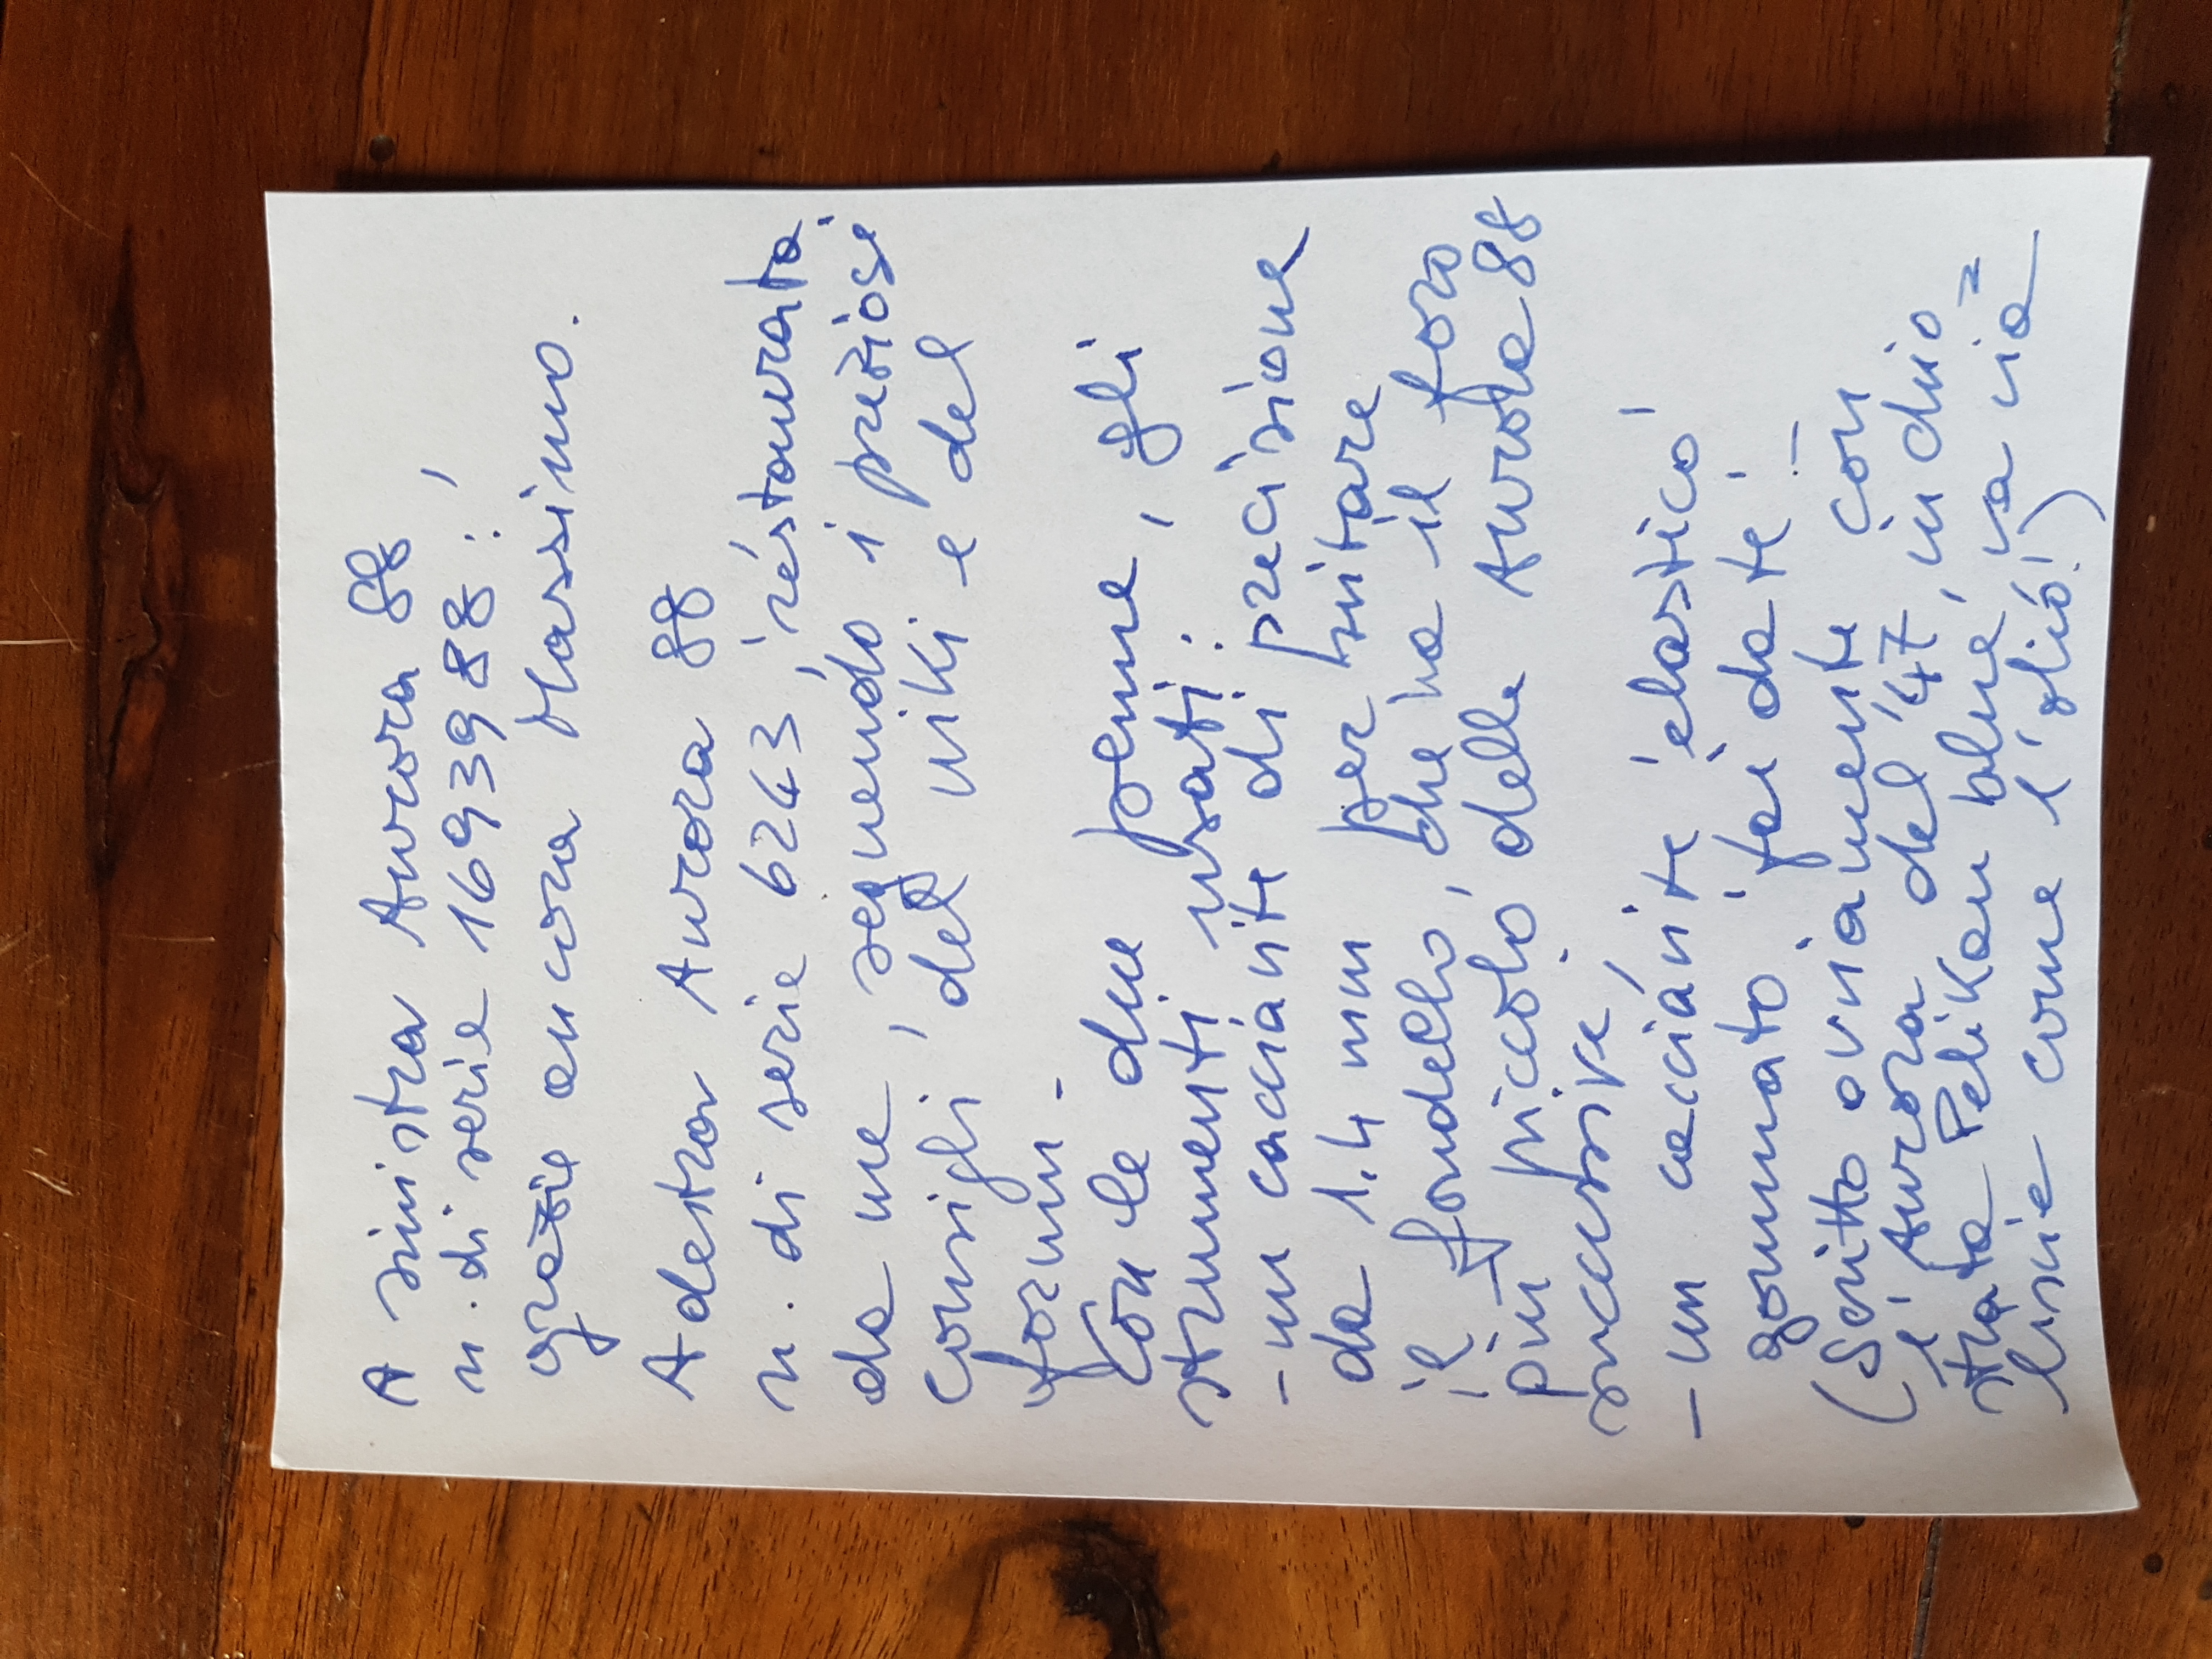 A sinistra Aurora 88
n. di serie 1693988 :,
grazie ancora Massimo.
A destra Aurora 88
n. di serie 6243, restaurata
da me, seguendo i preziosi
consigli, del wiki e del
forum -
Con le due penne, gli
strumenti usati:
- un cacciavite di precisione
da 1.4 mm per svitare
il fondello, che ha il foro
più piccolo, delle Aurora 88
successive
- un cacciavite 'elastico'
gommato 'fai da te' -
(Scritto ovviamente con
l'Aurora del '47, inchio=
strata Pelikan blue, va via
liscie come l'olio!)